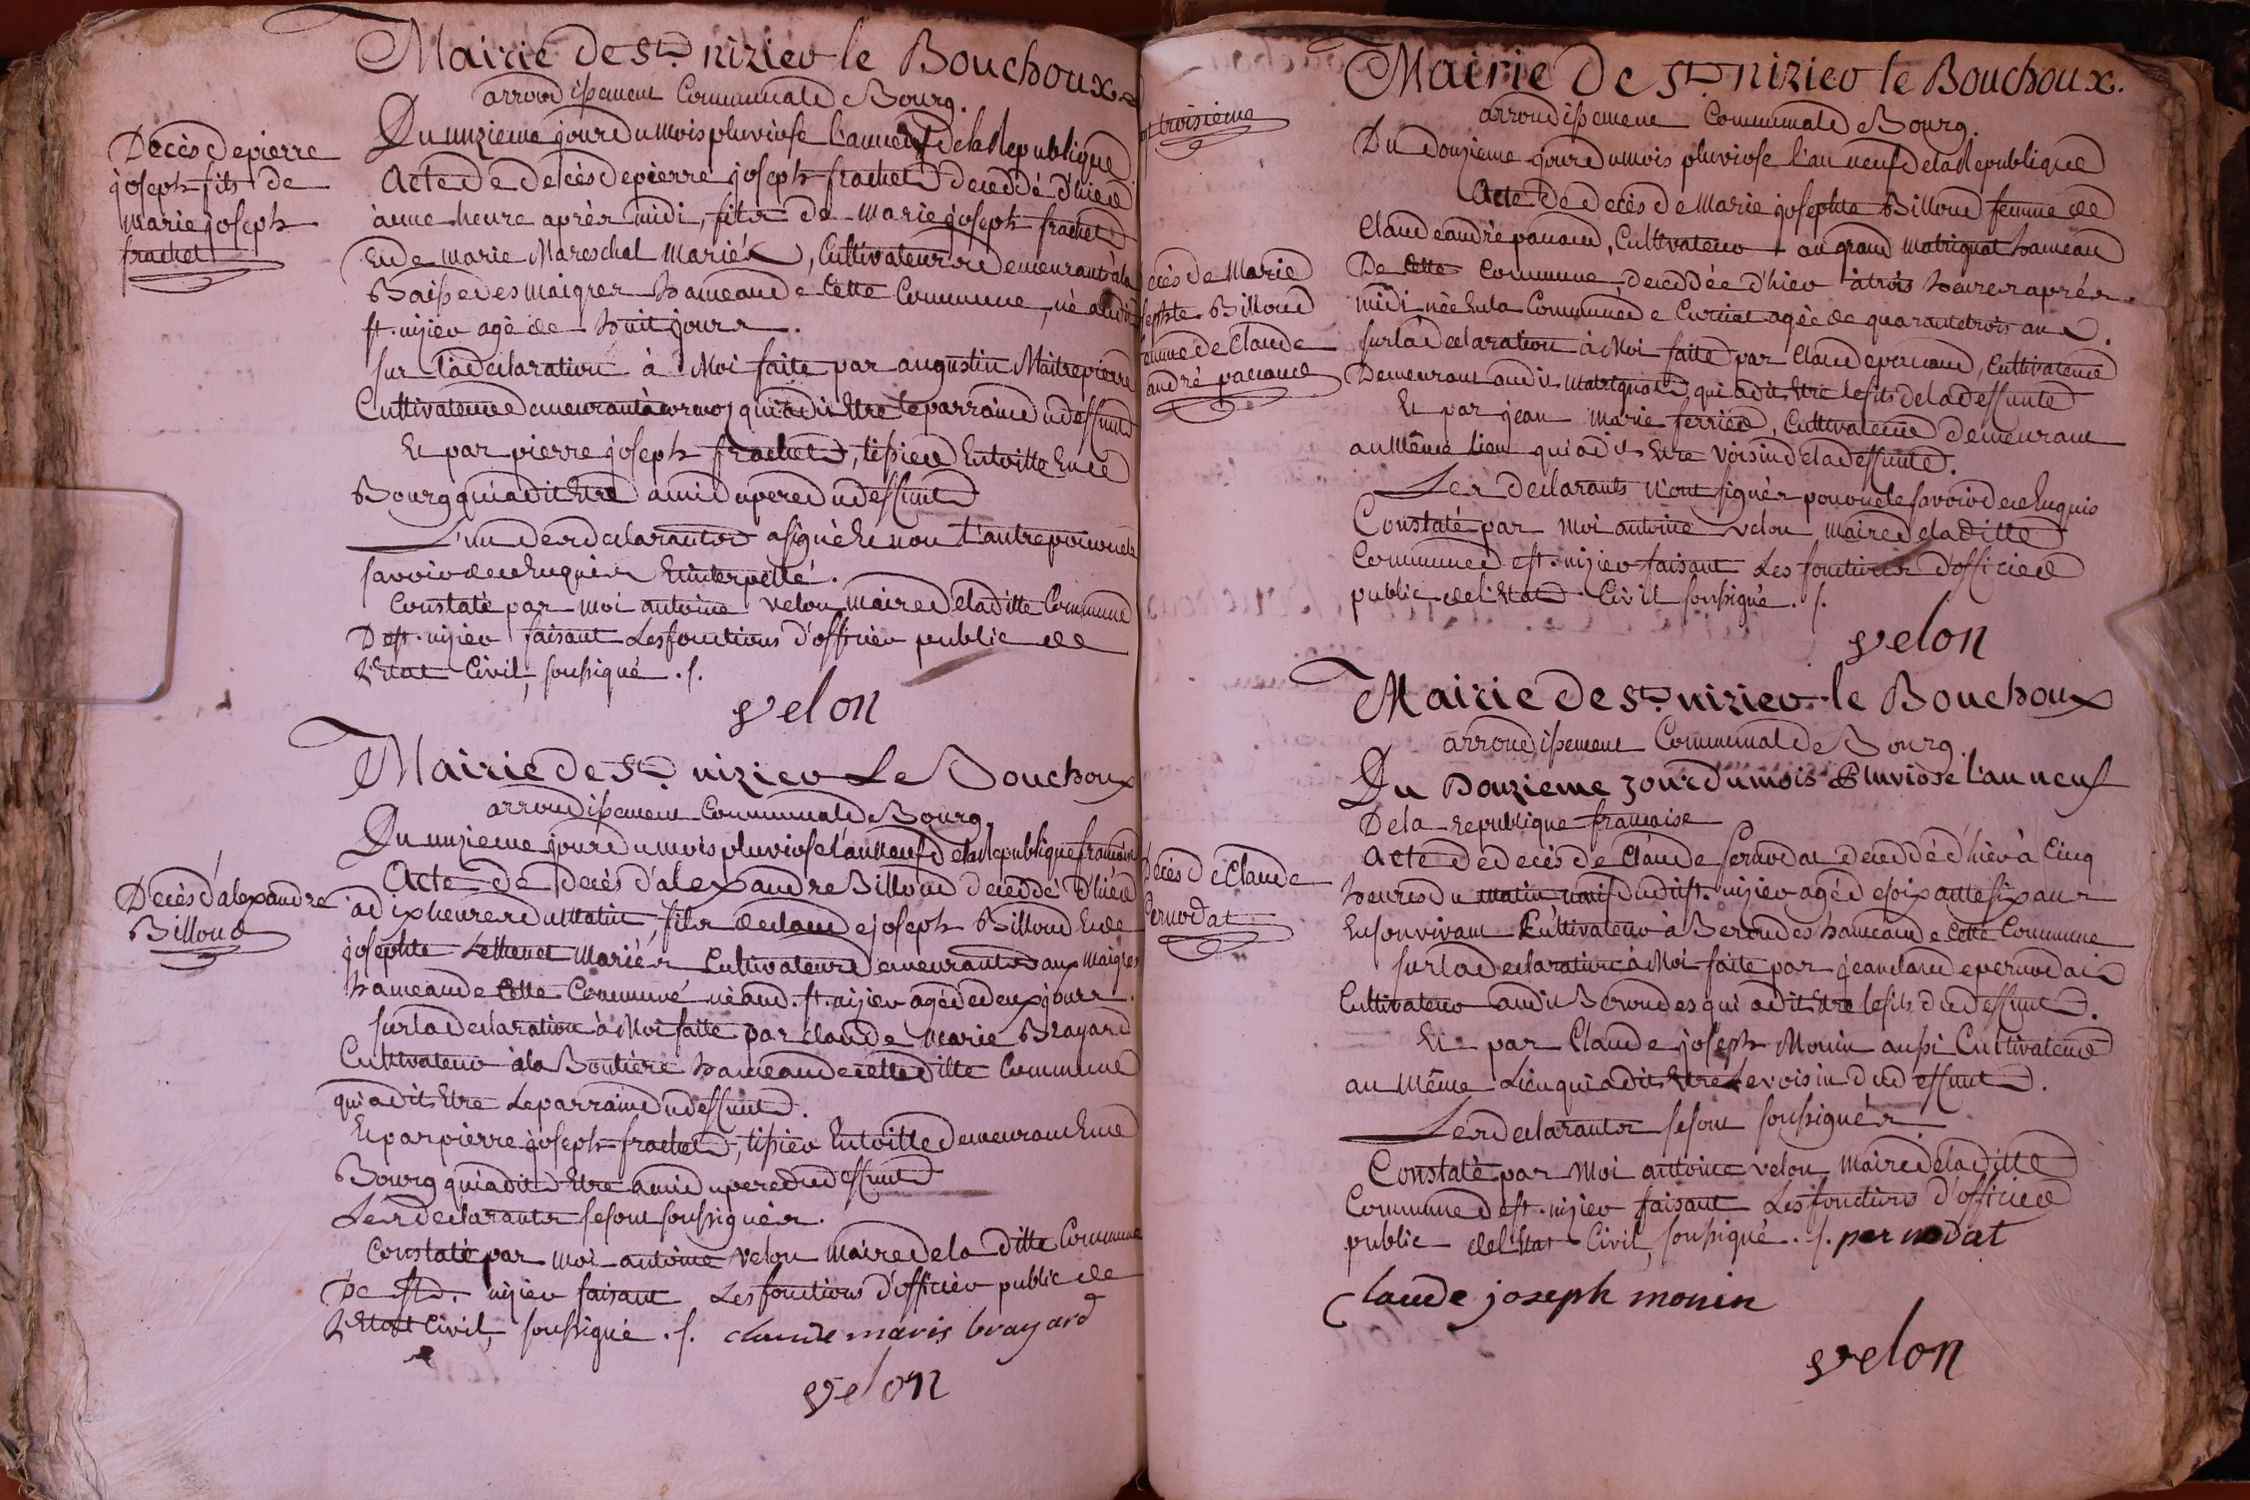 Mairie de St. nizier le Bouchoux
arrondissement Communal de Bourg.
Décès de pierre
joseph fils de
marie joseph
frachet
Du unzieme jour du mois pluviose l'an neuf de la Republique
Acte de décès de pierre joseph frachet decedé d'hier
à une heure après midi, fils de marie joseph frachet
Et de marie Mareschal mariés, Cultivateurs demeurants à la
Baisse des maigres hameau de Cette Commune, né audit
st. nizier agé de huit jours.
sur la declaration à Moi faite par augustin Maitrepierre
Cultivateur demeurant à cormoz qui a dit Etre le parrain du deffunt
Et par pierre joseph frachet, tissier En toille En ce
Bourg qui a dit Etre ami du pere du deffunt
L'un des declarants a signé Et non l'autre pour ne le
savoir de ce Enquis Et interpellé.
Constaté par moi antoine velon maire de la ditte Commune
De st. nizier faisant Les fonctions d'officier public de
L'Etat Civil, soussigné . s.
velon
Mairie de St. nizier Le Bouchoux
arrondissement Communal de Bourg.
Décès d'alexandre
Billoud
Du unzieme jour du mois pluviose l'an neuf de la Republique francaise
Acte de décès d'alexandre Billoud decedé d'hier
à dix heures du matin, fils de claude joseph Billoud Et de
josephte mariés Cultivateurs demeurants aux maigres
hameau de Cette Commune né aud. st. nizier agé de deux jours.
sur la declaration à Moi faite par claude marie Brayard
Cultivateur à la Boutière hameau de cette ditte Commune
qui a dit Etre Le parrain du deffunt.
Et par pierre joseph frachet, tissier En toille demeurant En ce
Bourg qui a dit Etre ami du pere du deffunt
Les declarants se sont soussignés.
Constaté par moi antoine velon maire de la ditte Commune
De st. nizier faisant Les fonctions d'officier public de
L'Etat Civil, soussigné . s. claude maris brayard
velon
Mairie de St. nizier le Bouchoux.
arrondissement Communal de Bourg.
troisieme
Du douzieme jour du mois pluviose l'an neuf de la Republique
Acte de décès de Marie josephte Billoud femme de
Claude andré pauand, Cultivateur au grand matrignat hameau
De Cette Commune, decedée d'hier à trois heures après
midi née En la Commune de Curciat agée de quarante trois ans.
ecès de Marie
sephte Billoud
emme de Claude
andré pauand
sur la declaration à Moi faite par Claude pauand, Cultivateur
Demeurant audit Matrignat, qui a dit Etre le fils de la deffunte
Et par jean marie ferrier, Cultivateur demeurant
au Même lieu qui a dit Etre voisin de la deffunte.
Les declarants n'ont signés pour ne le savoir de ce Enquis
Constaté par moi antoine velon maire de la ditte
Commune de st. nizier faisant Les fonctions d'officier
public de l'Etat Civil soussigné . s.
velon
Mairie de St. nizier le Bouchoux
arrondissement Communal de Bourg.
Du Douzieme jour du mois Pluviose l'an neuf
De la republique francaise
Décès de Claude
Pernodat
Acte de décès de Claude Pernodat decedé d'hier à Cinq
heures du matin dudit st. nizier agé de soixante six ans
En son vivant Cultivateur à Beroudes hameau de Cette Commune
sur la declaration à Moi faite par jean claude pernodat
Cultivateur audit Beroudes qui a dit Etre le fils du deffunt.
Et par Claude joseph Monin aussi Cultivateur
au même Lieu qui a dit Etre Le voisin du deffunt.
Les declarants se sont soussignés
Constaté par moi antoine velon maire de la ditte
Commune de st. nizier faisant Les fonctions d'officier
public de l'Etat Civil, soussigné . s. pernodat
Claude joseph monin
velon